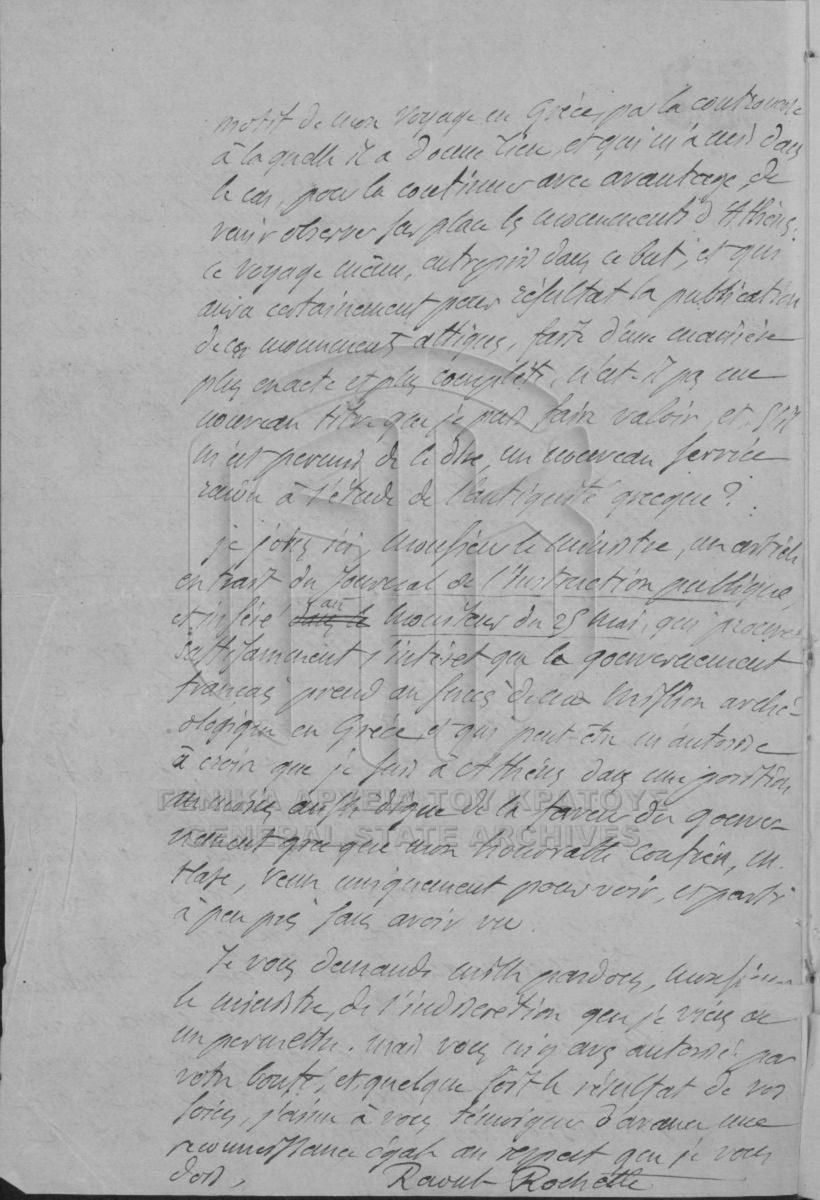 motif de mon voyage en Grèce, par la controverse
à laquelle il a donné lieu, et qui m'a mis dans
le cas, pour la continuer avec avantage, de
venir observer sur place les monuments d'Athènes;
ce voyage même, entrepris dans ce but, et qui
aura certainement pour résultat la publication
de ces monuments attiques, faite d'une manière
plus exacte et plus complète, n'est-il pas une
nouveau titre que je puis faire valoir, et, s'il
m'est permis de le dire, un nouveau service
rendu à l'étude de l'antiquité grecque?
je joins ici, Monsieur le ministre, un article
extrait du Journal de l'Instruction publique,
et inséré dans le au moniteur du 25 mai, qui prouve
suffisamment l'intérêt que le gouvernement
français prend au succès de ma mission arché-
ologique en Grèce, et qui peut-être m'autorise
à croire que je suis à Athènes dans une position
au moins aussi digne de la faveur du gouver-
nement grec que mon honorable confrère, M.
Hase, venu uniquement pour voir, et parti
à peu près sans avoir vu.
Je vous demande mille pardons, Monsieur
le ministre, de l'indiscrétion que je viens de
me permettre. mais vous m'y avez autorisé par
votre bonté, et quelque soit le résultat de vos
soins, j'aime à vous témoigner d'avance une
reconnaissance égale au respect que je vous
dois,
Raoul-Rochette
ΓΕΝΙΚΑ ΑΡΧΕΙΑ ΤΟΥ ΚΡΑΤΟΥΣ
GENERAL STATE ARCHIVES